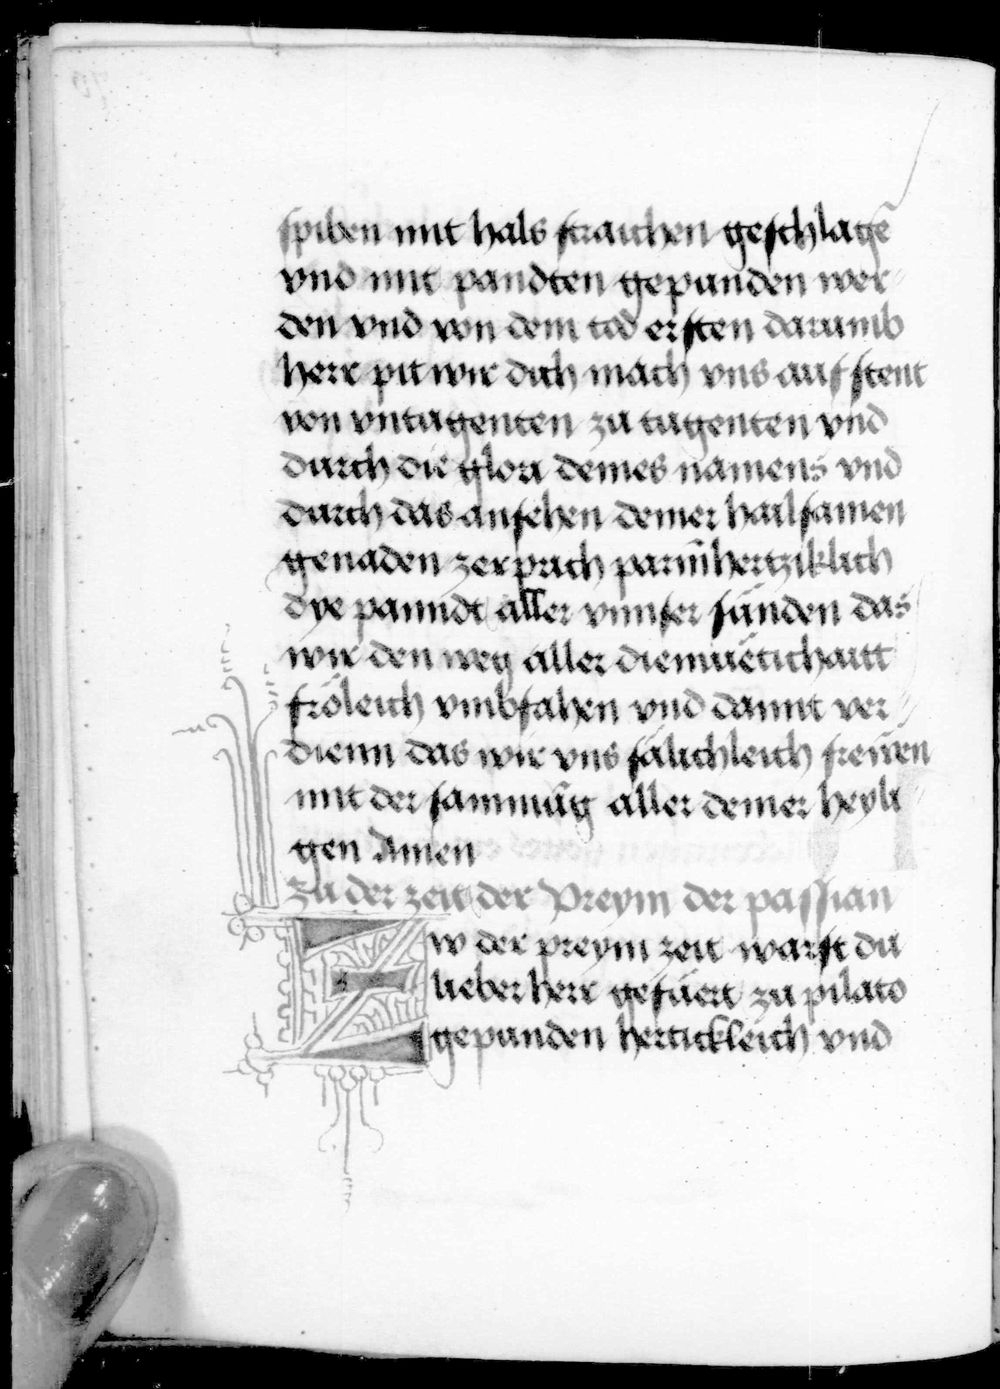 spiben mit hals straichen geschlagē
vnd mit pandten gepunden wer-
den vnd von dem tod ersten darumb
herr pit wir dich mach vns aufstent
von vntugenten zu tugenten vnd
durch die glori deines namens vnd
durch das ansehen deiner hailsamen
genaden zerprich parm̄hertziklich
dye panndt aller vnnser sünden das
wir den weg aller diemuetichaitt
fröleich vmbfahen vnd damit ver-
dienn das wir vns sälichleich freẅen
mit der sammūg aller deiner heyli
gen Amen
zu der zeit der Preym der passian
Zw der preym zeit warst du
lieber herr gefüert zu pilato
gepunden hertickleich vnd